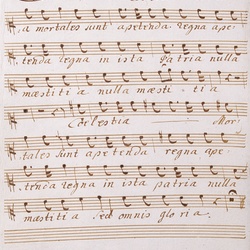 a mortales sunt apetenda regna ape
tenda regna in ista patria nulla
mæstitia nulla mæsti tia
Cœlestia Mor
tales sunt apetenda regna ape
tenda regna in ista patria nulla
mæstitia sed omnis gloria.